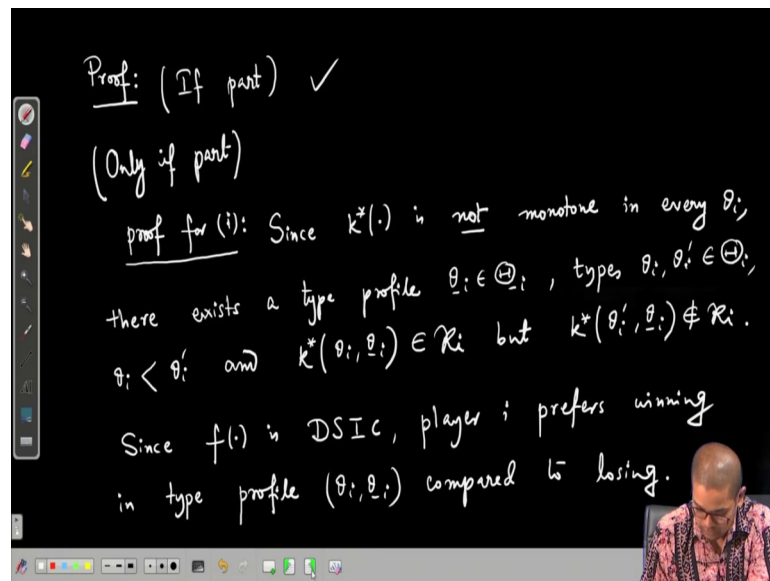 Proof: (If part) ✓
(Only if part)
proof for (i): Since k*(·) is not monotone in every θi,
there exists a type profile θ̲-i ∈ Θ̲-i, types θi, θi' ∈ Θi,
θi < θi' and k*(θi, θ̲-i) ∈ Ri but k*(θi', θ̲-i) ∉ Ri.
Since f(·) is DSIC, player i prefers winning
in type profile (θi, θ̲-i) compared to losing.